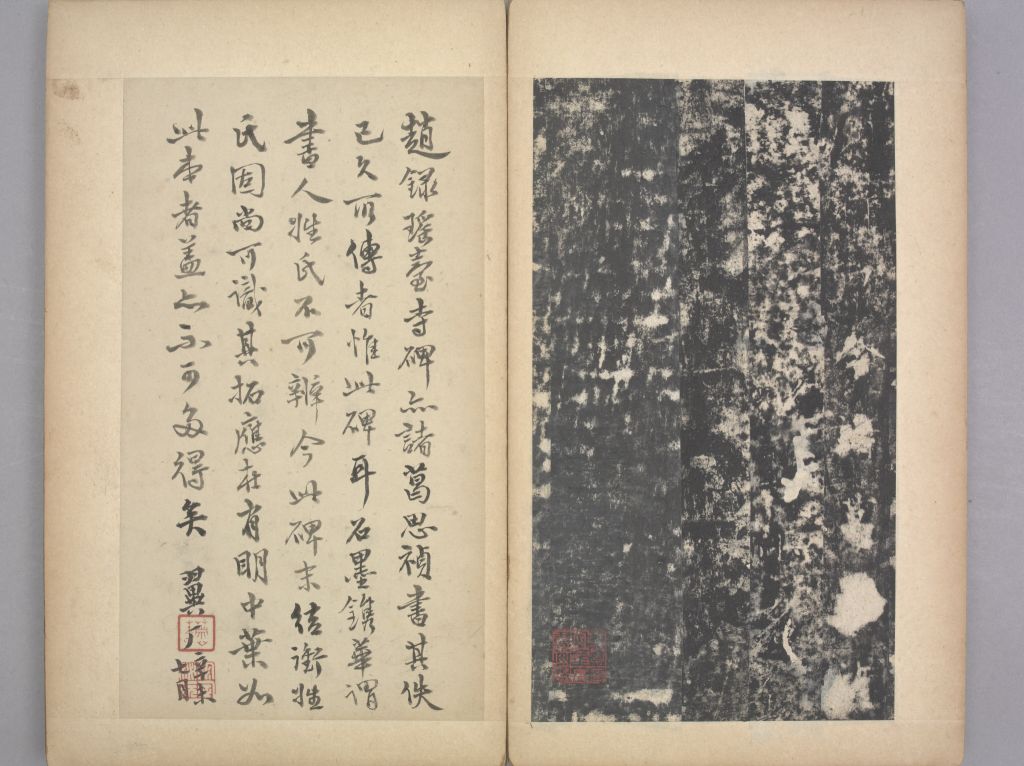 趙錄瑤臺寺碑亦諸葛思禎書其佚
已久可傳者惟此碑耳石墨鐫華謂
書人姓氏不可辨今此碑末結銜姓
氏固尚可識其拓應在有明中葉如
此本者蓋亦不可多得矣 翼广
七月